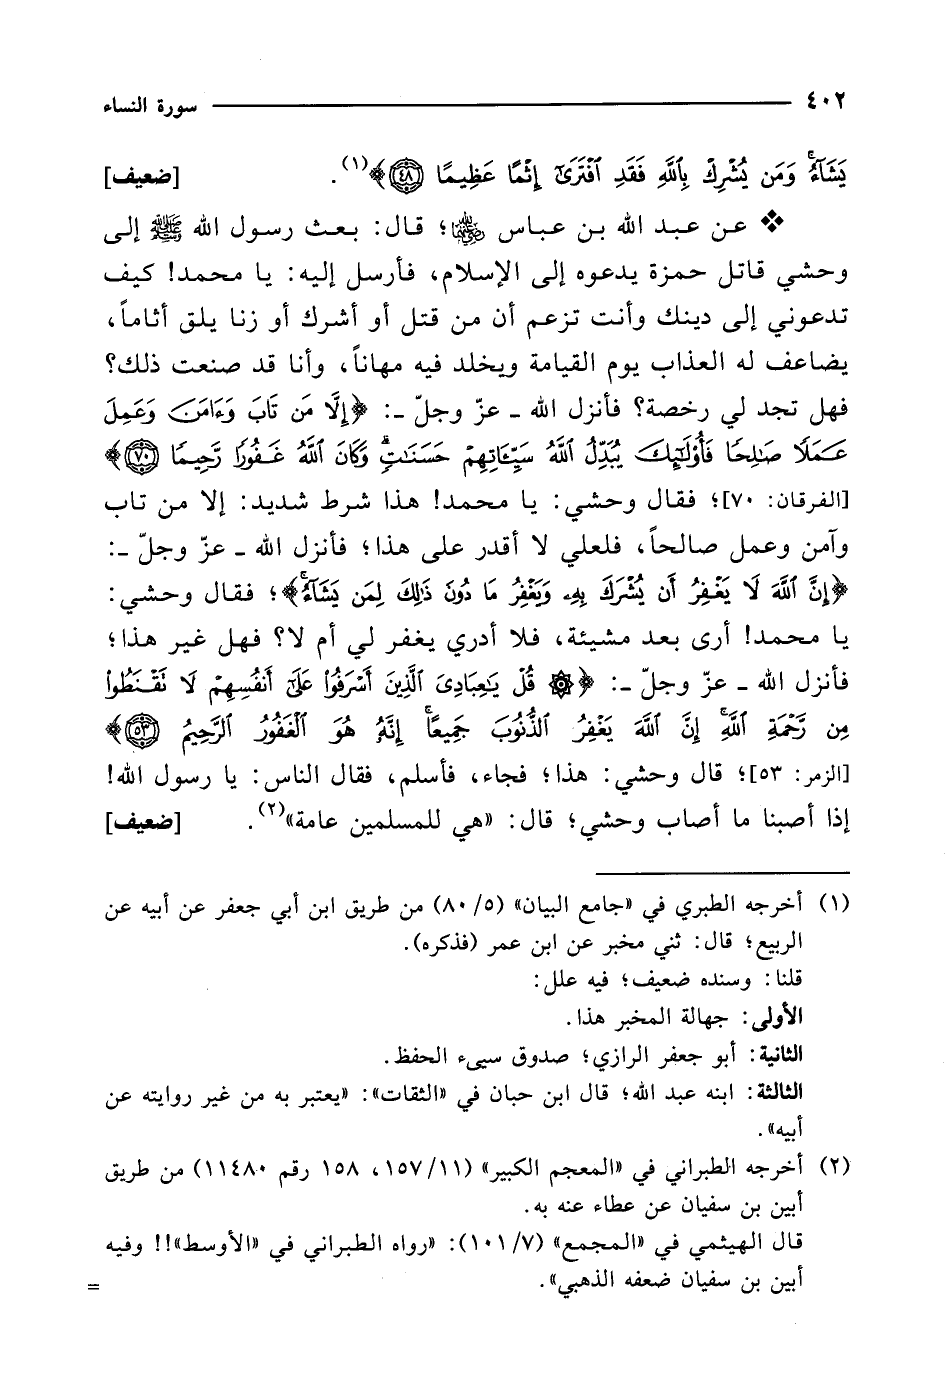 ٤٠٢ سورة النساء
يَشَآءُۚ وَمَن يُشْرِكْ بِٱللَّهِ فَقَدِ ٱفْتَرَىٰٓ إِثْمًا عَظِيمًا ﴿٤٨﴾﴾(١). [ضعيف]
❖ عن عبد الله بن عباس رضي الله عنهما؛ قال: بعث رسول الله ﷺ إلى
وحشي قاتل حمزة يدعوه إلى الإسلام، فأرسل إليه: يا محمد! كيف
تدعوني إلى دينك وأنت تزعم أن من قتل أو أشرك أو زنا يلق أثاماً،
يضاعف له العذاب يوم القيامة ويخلد فيه مهاناً، وأنا قد صنعت ذلك؟
فهل تجد لي رخصة؟ فأنزل الله ـ عزّ وجلّ ـ: ﴿إِلَّا مَن تَابَ وَءَامَنَ وَعَمِلَ
عَمَلًا صَٰلِحًا فَأُوْلَٰٓئِكَ يُبَدِّلُ ٱللَّهُ سَيِّـَٔاتِهِمْ حَسَنَٰتٍۗ وَكَانَ ٱللَّهُ غَفُورًا رَّحِيمًا ﴿٧٠﴾﴾
[الفرقان: ٧٠]؛ فقال وحشي: يا محمد! هذا شرط شديد: إلا من تاب
وآمن وعمل صالحاً، فلعلي لا أقدر على هذا؛ فأنزل الله ـ عزّ وجلّ ـ:
﴿إِنَّ ٱللَّهَ لَا يَغْفِرُ أَن يُشْرَكَ بِهِۦ وَيَغْفِرُ مَا دُونَ ذَٰلِكَ لِمَن يَشَآءُۚ﴾؛ فقال وحشي:
يا محمد! أرى بعد مشيئة، فلا أدري يغفر لي أم لا؟ فهل غير هذا؛
فأنزل الله ـ عزّ وجلّ ـ: ﴿۞ قُلْ يَٰعِبَادِىَ ٱلَّذِينَ أَسْرَفُوا۟ عَلَىٰٓ أَنفُسِهِمْ لَا تَقْنَطُوا۟
مِن رَّحْمَةِ ٱللَّهِۚ إِنَّ ٱللَّهَ يَغْفِرُ ٱلذُّنُوبَ جَمِيعًاۚ إِنَّهُۥ هُوَ ٱلْغَفُورُ ٱلرَّحِيمُ ﴿٥٣﴾﴾
[الزمر: ٥٣]؛ قال وحشي: هذا؛ فجاء، فأسلم، فقال الناس: يا رسول الله!
إذا أصبنا ما أصاب وحشي؛ قال: «هي للمسلمين عامة»(٢). [ضعيف]
(١) أخرجه الطبري في «جامع البيان» (٨٠/٥) من طريق ابن أبي جعفر عن أبيه عن
الربيع؛ قال: ثني مخبر عن ابن عمر (فذكره).
قلنا: وسنده ضعيف؛ فيه علل:
الأولى: جهالة المخبر هذا.
الثانية: أبو جعفر الرازي؛ صدوق سيىء الحفظ.
الثالثة: ابنه عبد الله؛ قال ابن حبان في «الثقات»: «يعتبر به من غير روايته عن
أبيه».
(٢) أخرجه الطبراني في «المعجم الكبير» (١٥٧/١١، ١٥٨ رقم ١١٤٨٠) من طريق
أبين بن سفيان عن عطاء عنه به.
قال الهيثمي في «المجمع» (١٠١/٧): «رواه الطبراني في «الأوسط»!! وفيه
أبين بن سفيان ضعفه الذهبي».
=